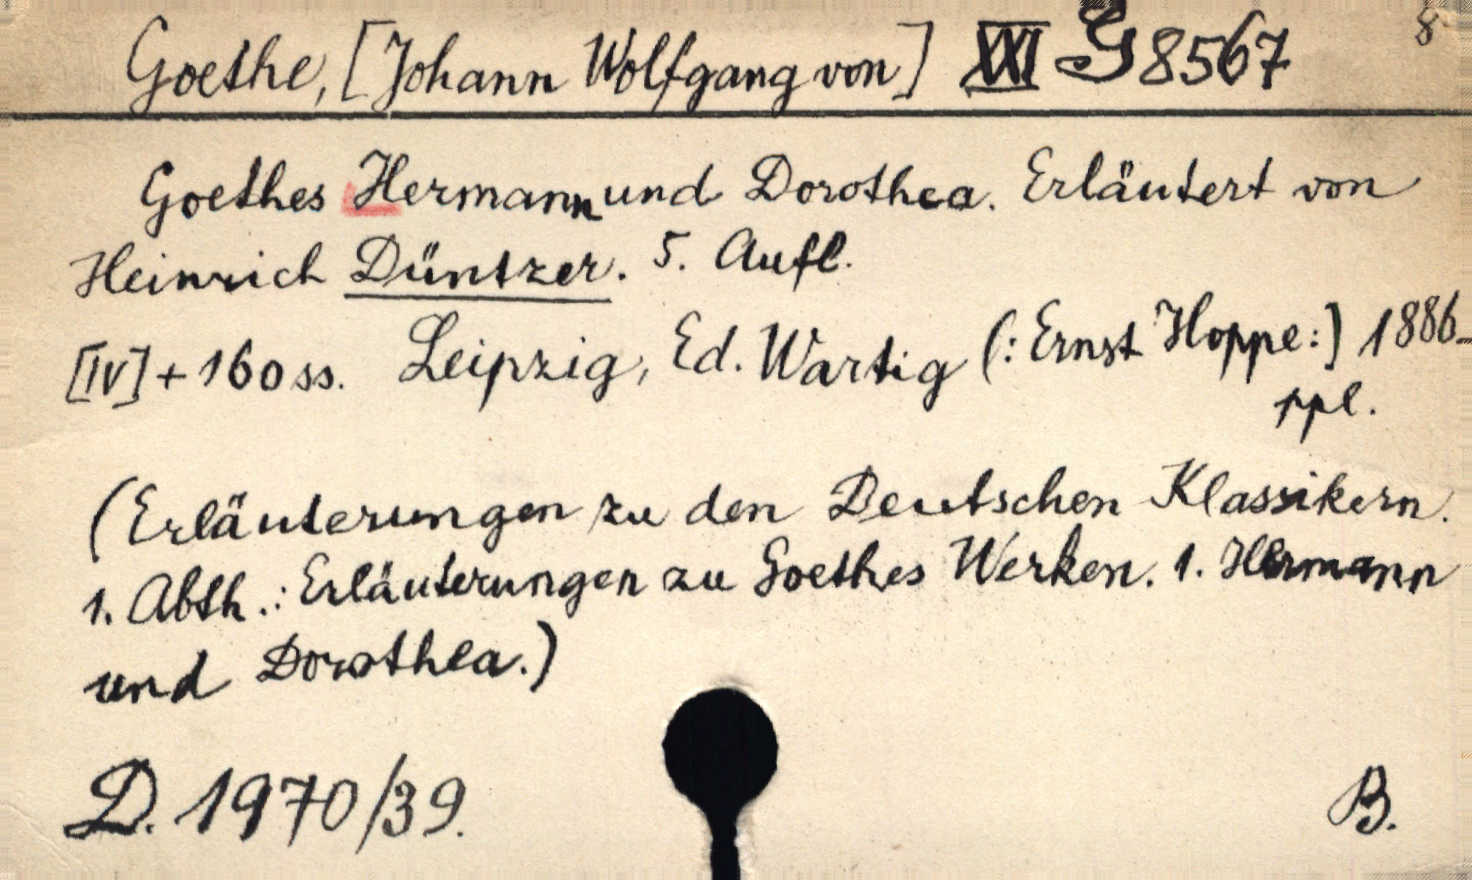 Goethe, [Johann Wolfgang von] XXI G 8567 8
Goethes Hermann und Dorothea. Erläutert von
Heinrich Düntzer. 5. Aufl.
[IV] + 160 ss. Leipzig, Ed. Wartig (: Ernst Hoppe:) 1886-
ppl.
(Erläuterungen zu den Deutschen Klassikern.
1. Abth.: Erläuterungen zu Goethes Werken. 1. Hermann
und Dorothea.)
D. 1970/39.
B.